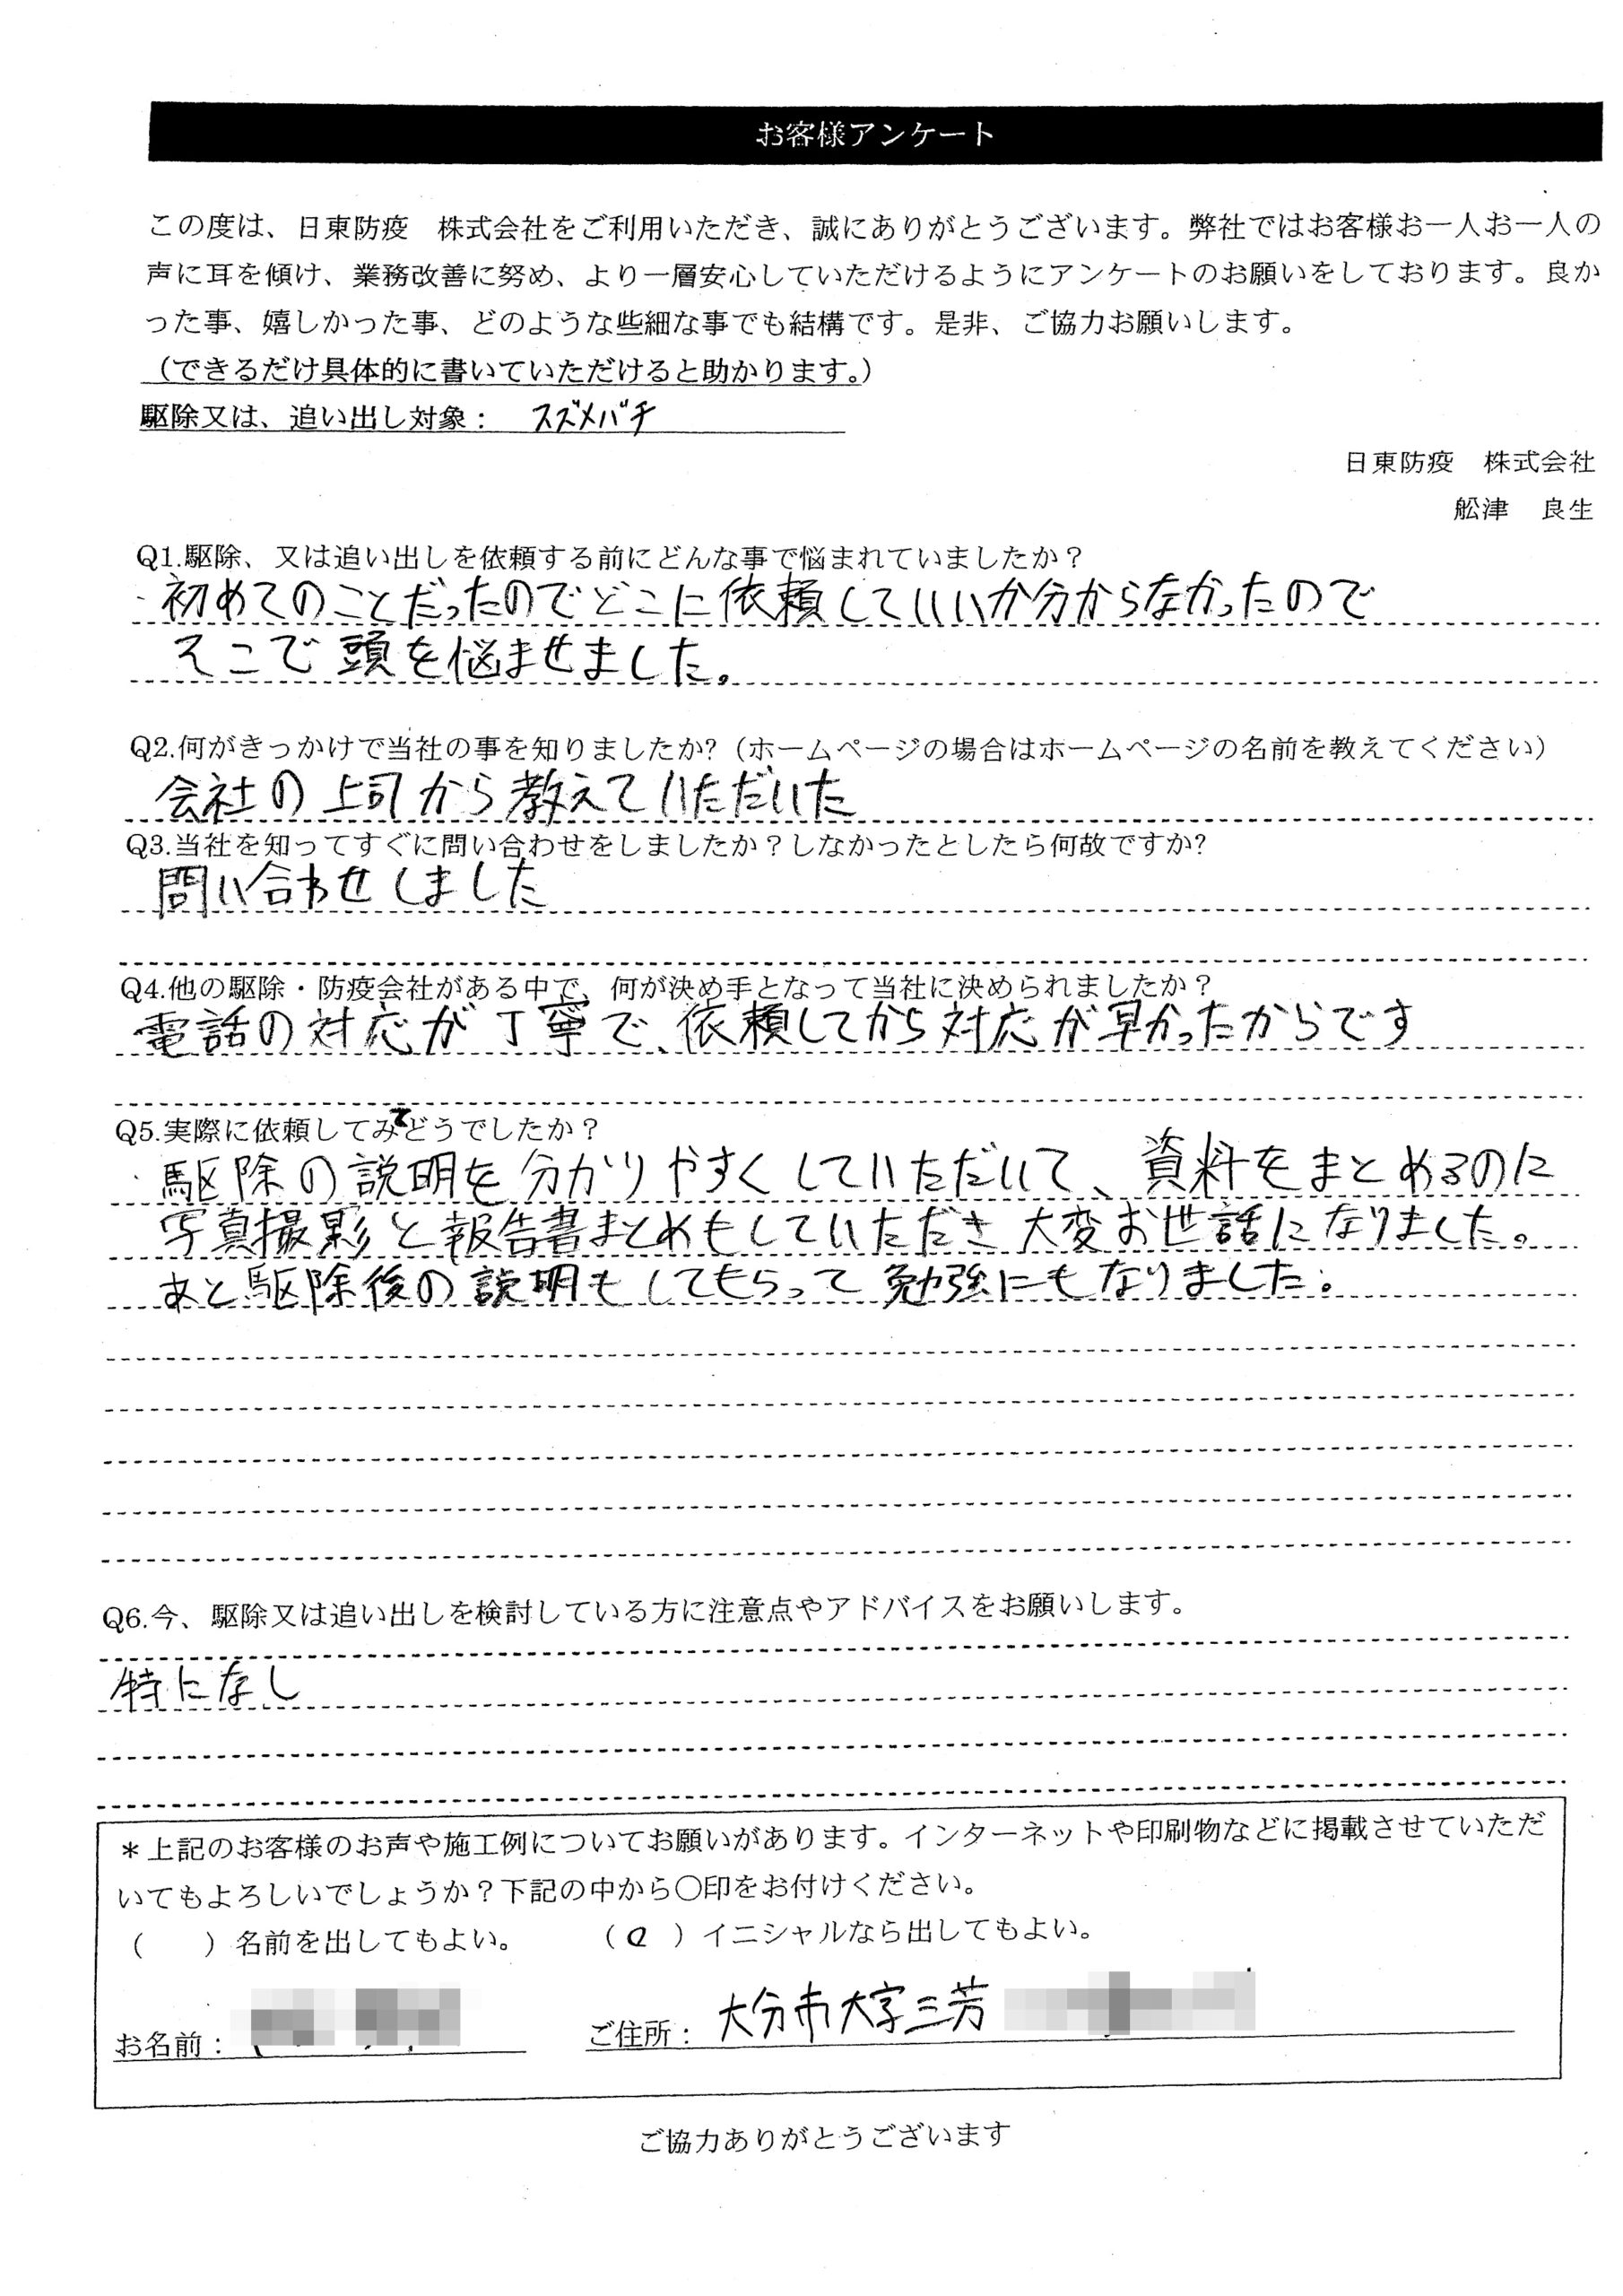 お客様アンケート
この度は、日東防疫　株式会社をご利用いただき、誠にありがとうございます。弊社ではお客様お一人お一人の
声に耳を傾け、業務改善に努め、より一層安心していただけるようにアンケートのお願いをしております。良か
った事、嬉しかった事、どのような些細な事でも結構です。是非、ご協力お願いします。
（できるだけ具体的に書いていただけると助かります。）
駆除又は、追い出し対象： スズメバチ
日東防疫　株式会社
舩津　良生
Q1.駆除、又は追い出しを依頼する前にどんな事で悩まれていましたか？
・初めてのことだったのでどこに依頼していいか分からなかったので
そこで頭を悩ませました。
Q2.何がきっかけで当社の事を知りましたか?（ホームページの場合はホームページの名前を教えてください）
会社の上司から教えていただいた
Q3.当社を知ってすぐに問い合わせをしましたか？しなかったとしたら何故ですか?
問い合わせしました
Q4.他の駆除・防疫会社がある中で、何が決め手となって当社に決められましたか？
電話の対応が丁寧で、依頼してから対応が早かったからです
Q5.実際に依頼してみてどうでしたか？
・駆除の説明を分かりやすくしていただいて、資料をまとめるのに
写真撮影と報告書まとめもしていただき大変お世話になりました。
あと駆除後の説明もしてもらって勉強にもなりました。
Q6.今、駆除又は追い出しを検討している方に注意点やアドバイスをお願いします。
特になし
＊上記のお客様のお声や施工例についてお願いがあります。インターネットや印刷物などに掲載させていただ
いてもよろしいでしょうか？下記の中から〇印をお付けください。
（　　）名前を出してもよい。　　（〇）イニシャルなら出してもよい。
お名前： ご住所： 大分市大字三芳
ご協力ありがとうございます